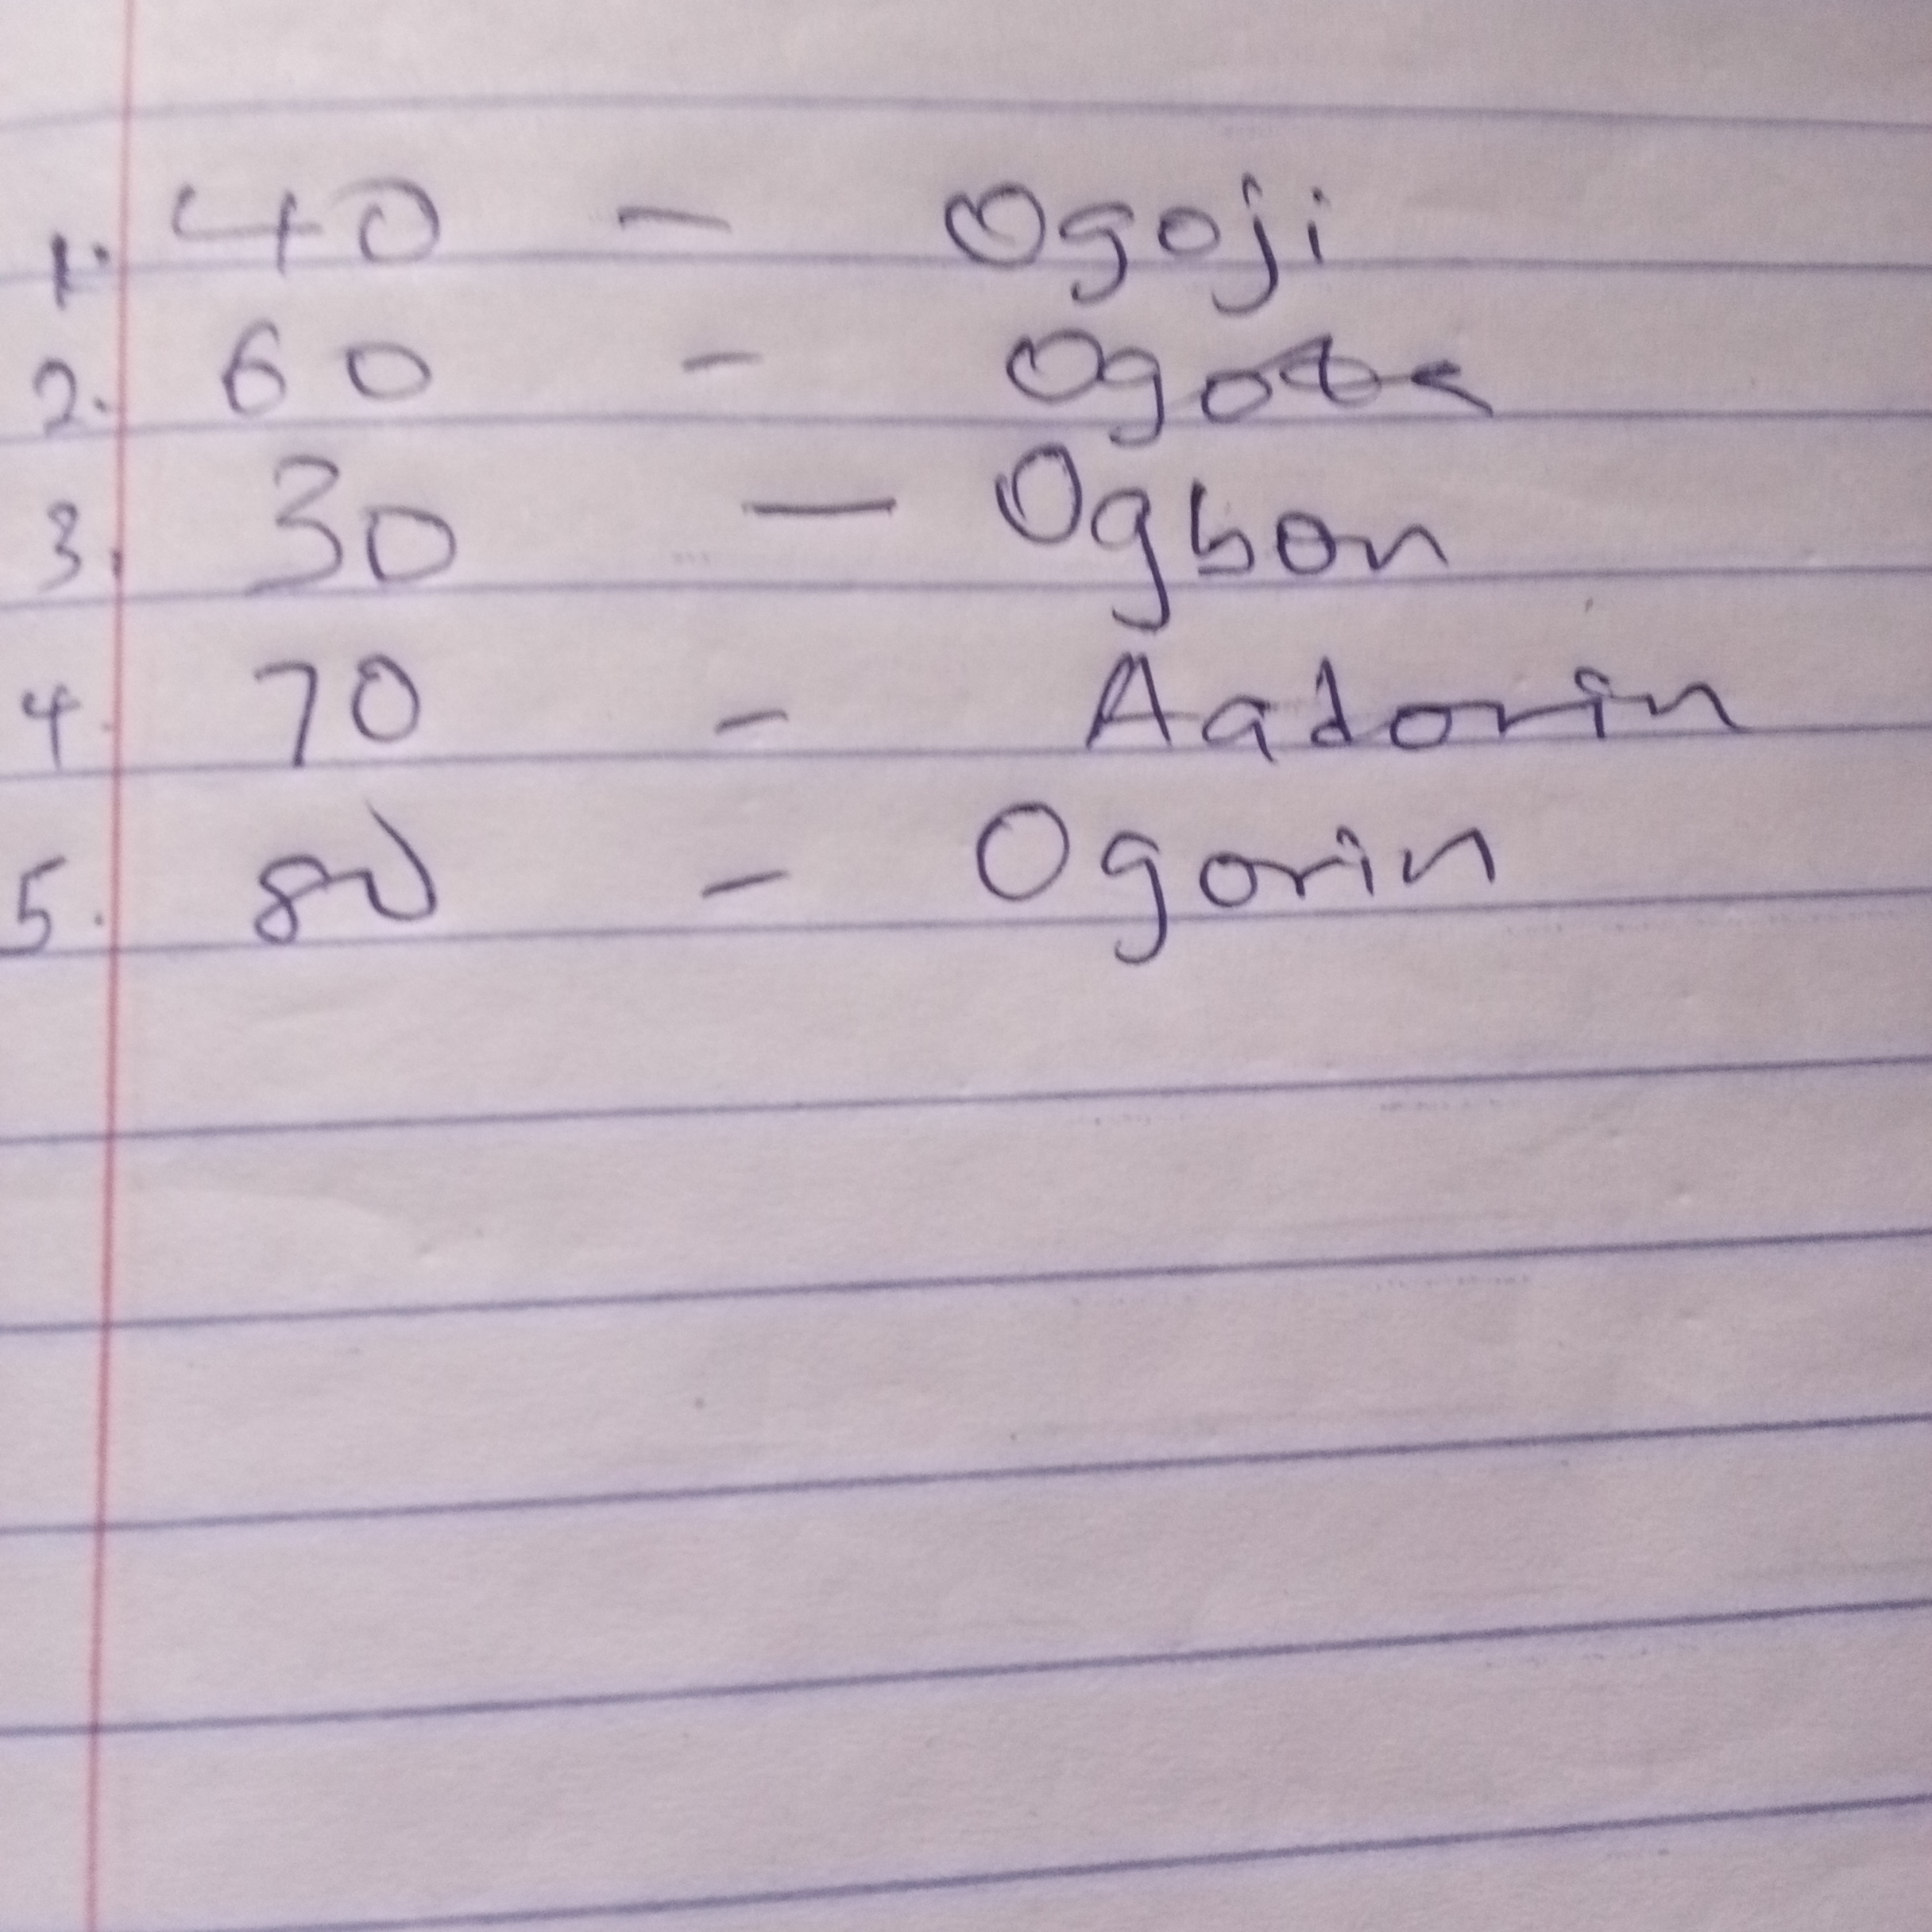 1. 40 - Ogoji
2. 60 - Ogota
3. 30 - Ogbon
4. 70 - Aadorin
5. 80 - Ogorin